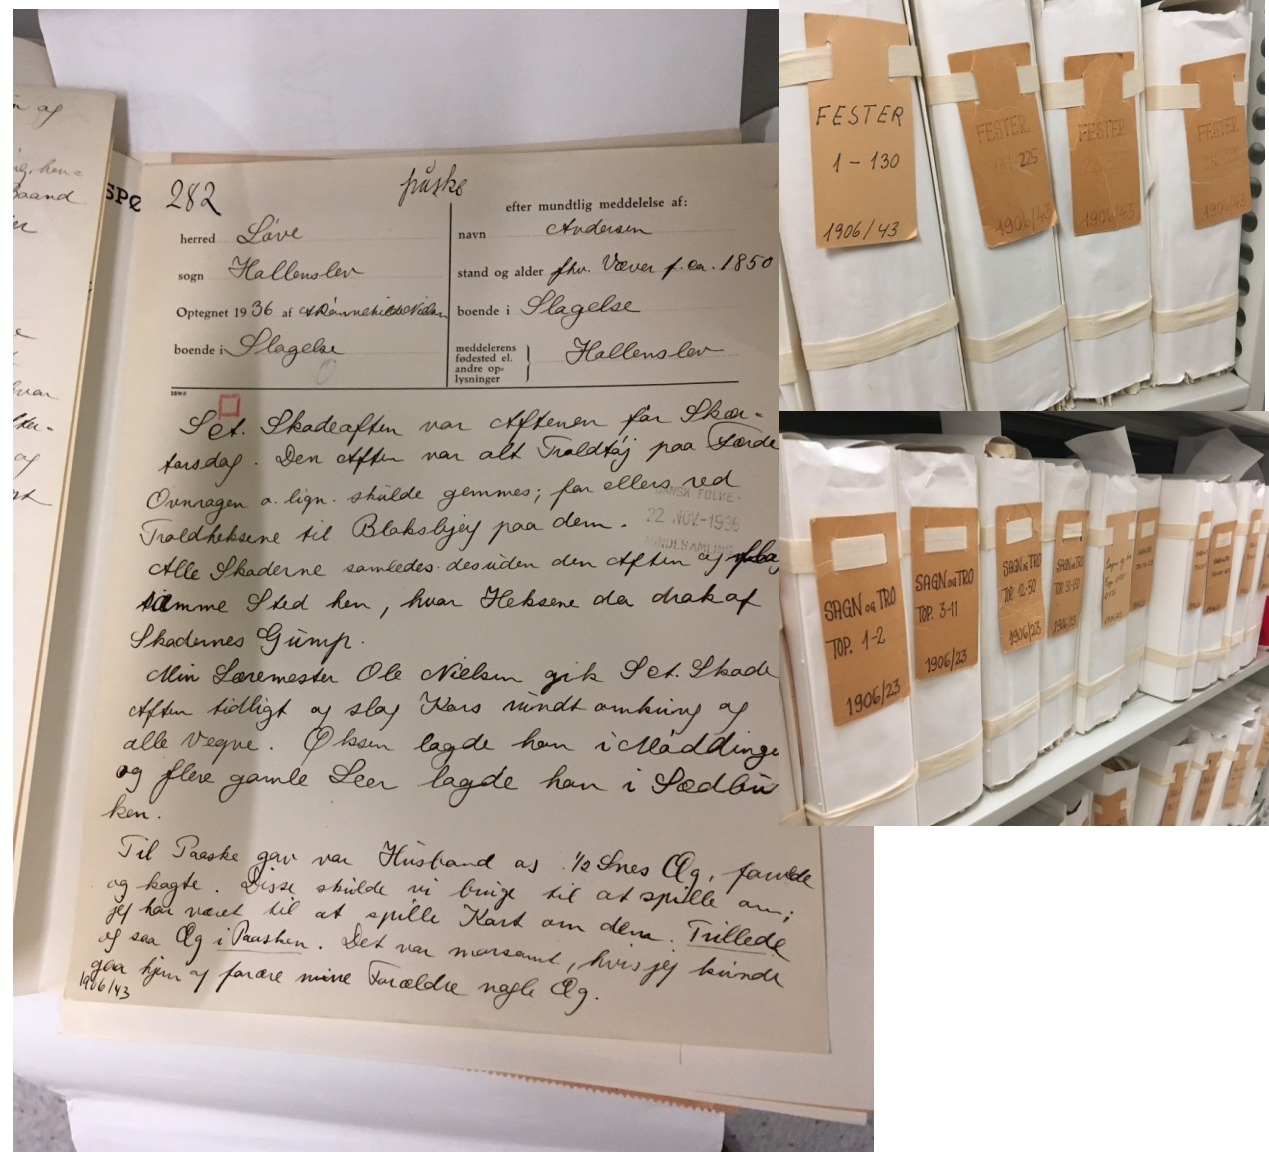 282
påske
herred Løve
sogn Hallenslev
Optegnet 1936 af
boende i Slagelse
efter mundtlig meddelelse af:
navn Andersen
stand og alder fhv. Væver f. ca. 1850
boende i Slagelse
meddelerens
fødested el.
andre op-
lysninger
Hallenslev
Sct. Skadeaften var Aftenen før Skær-
torsdag. Den Aften var alt Troldtøj paa
Ovnragen o. lign. skulde gemmes; for ellers red
Troldheksene til Bloksbjerg paa dem.
Alle Skaderne samledes desuden den Aften og
samme Sted hen, hvor Heksene da drak af
Skadernes Gump.
Min Læremester Ole Nielsen gik Sct. Skade
Aften tidligt og slog Kors rundt omkring og
alle Vegne. Øksen lagde han i Møddinge
og flere gamle Leer lagde han i Sædbu
ken.
Til Paaske gav vor Husbond os 1/2 Snes Æg, farvede
og kogte. Disse skulde vi bruge til at spille om;
jeg har været til at spille Kort om dem. Trillede
og saa Æg i Paasken. Det var morsomt, hvis jeg kunde
gaa hjem og forære mine Forældre nogle Æg.
1906/43
DANSK FOLKE-
22 NOV. 1936
MINDESAMLING
FESTER
1-130
1906/43
FESTER
-225
1906/43
FESTER
1906/43
FESTER
1906/43
SAGN OG TRO
TOP. 1-2
1906/23
SAGN OG TRO
TOP. 3-11
1906/23
SAGN OG TRO
TOP. 12-50
1906/23
SAGN OG TRO
TOP. 51-
1906/23